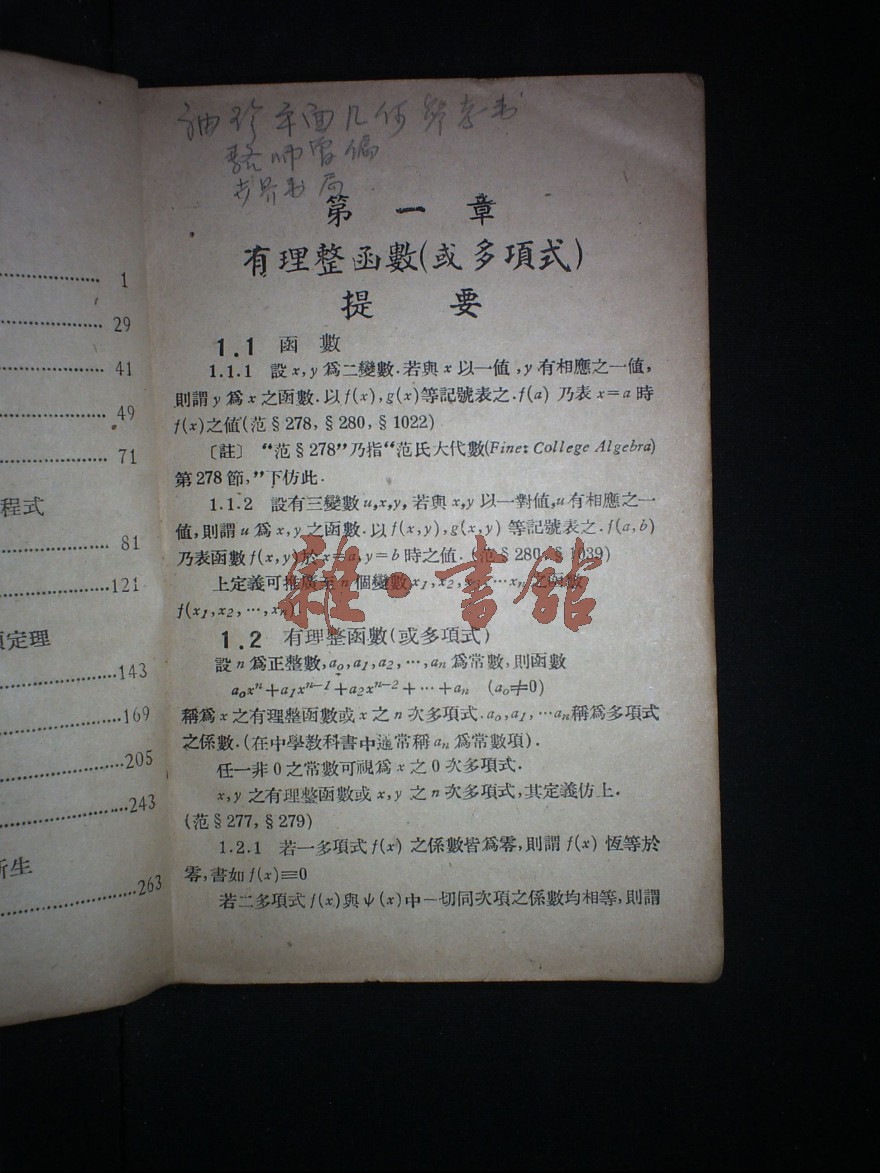 1
29
41
49
71
程式
81
121
定理
143
169
205
243
生
263
袖珍平面几何
骆师曾编
世界书局
第一章
有理整函數(或多項式)
提 要
1.1 函 數
1.1.1 設 x,y 爲二變數.若與 x 以一值,y 有相應之一值,
則謂 y 爲 x 之函數.以 f(x),g(x)等記號表之.f(a) 乃表 x=a 時
f(x)之値(范§278,§280,§1022)
〔註〕 “范§278”乃指“范氏大代數(Fine: College Algebra)
第278節,”下仿此.
1.1.2 設有三變數 u,x,y, 若與 x,y 以一對值,u 有相應之一
值,則謂 u 爲 x,y 之函數.以 f(x,y),g(x,y) 等記號表之.f(a,b)
乃表函數 f(x,y)於 x=a,y=b 時之值.(范§280,§1039)
上定義可推廣至 n 個變數 x₁,x₂,x₃…xₙ 之函數
f(x₁,x₂,…,xₙ).
雜·書館
1.2 有理整函數(或多項式)
設 n 爲正整數,a₀,a₁,a₂,…,aₙ 爲常數,則函數
a₀xⁿ+a₁xⁿ⁻¹+a₂xⁿ⁻²+…+aₙ (a₀≠0)
稱爲 x 之有理整函數或 x 之 n 次多項式.a₀,a₁,…aₙ稱爲多項式
之係數.(在中學敎科書中通常稱 aₙ 爲常數項).
任一非 0 之常數可視爲 x 之 0 次多項式.
x,y 之有理整函數或 x,y 之 n 次多項式,其定義仿上.
(范§277,§279)
1.2.1 若一多項式 f(x) 之係數皆爲零,則謂 f(x) 恆等於
零,書如 f(x)≡0
若二多項式 f(x)與 ψ(x)中一切同次項之係數均相等,則謂